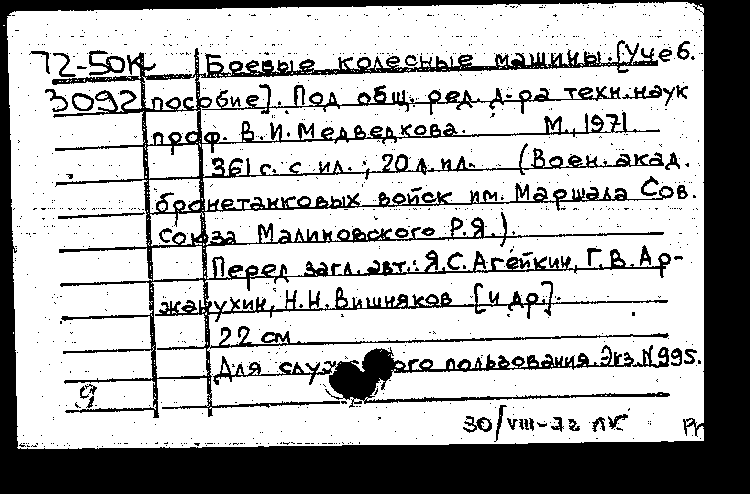 72-50К Боевые колесные машины. [Учеб.
3092 пособие]. Под общ. ред. д-ра техн. наук
проф. В.И. Медведкова. М., 1971.
361 с. с ил.; 20 л. ил. (Воен. акад.
бронетанковых войск им. Маршала Сов.
Союза Малиновского Р.Я.).
Перед загл. авт.: Я.С. Агейкин, Г.В. Ар-
жанухин, Н.Н. Вишняков [и др.].
22 см.
Для ого пользования. Экз. N 995.
9
30/VIII-72 ЛК